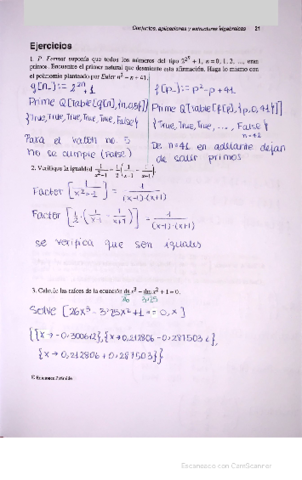 Conjuntos, aplicaciones y estructuras algebraicas 21
Ejercicios
1. P. Fermat suponía que todos los números del tipo 2^{2^n} + 1, n = 0, 1, 2, ..., eran
primos. Encuentre el primer natural que desmiente esta afirmación. Haga lo mismo con
el polinomio planteado por Euler n² − n + 41.
g[n_]:= 2^{2^n}+1
Prime Q[Table[g[n], {n,0,5}]]
{True, True, True, True, True, False}
Para el valor no 5
no se cumple (False)
f[n_]:= p²-p+41
Prime Q[Table[f[p], {p,0,41}]]
{True, True, True, ..., False}
n=42
De n=41 en adelante dejan
de salir primos
2. Verifique la igualdad
Factor [1/(x²-1)] = 1/((x-1)·(x+1))
Factor [1/2·(1/(x-1) - 1/(x+1))] = 1/((x-1)·(x+1))
se verifica que son iguales
3. Calcule las raíces de la ecuación x³ − x² + 1 = 0.
26 3.25
Solve [26x³ - 3.25x²+1 == 0, x]
{{x → -0,300612}, {x → 0,212806 - 0,287503 i},
{x → 0,212806 + 0,287503}}
Escaneado con CamScanner